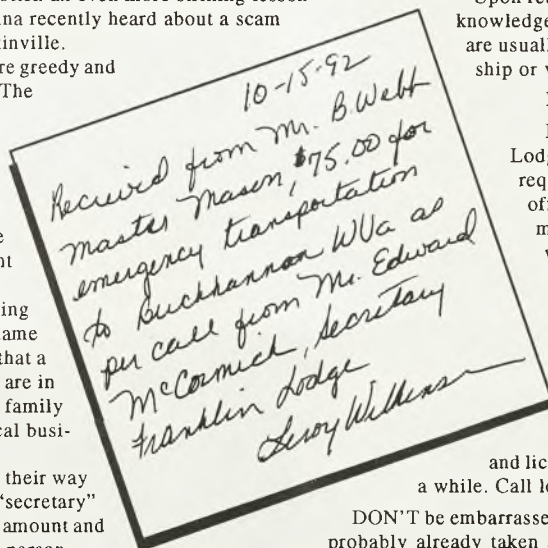 an even more striking lesson
ina recently heard about a scam
inville.
re greedy and
The
e
nt
ing
ame
that a
are in
family
cal busi-
their way
“secretary”
amount and
person
10-15-92
Received from Mr. B. Webb
Master Mason, $75.00 for
emergency transportation
to Buckhannon WVa as
per call from Mr. Edward
McCormick, Secretary
Franklin Lodge
Leroy Wilkins
Upon rea
knowledge
are usuall
ship or v
Lodg
req
of
m
and lic
a while. Call lo
DON'T be embarrasse
probably already taken